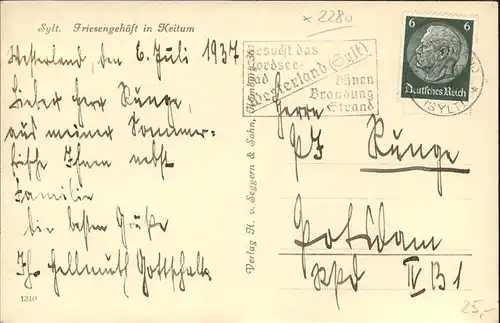 Sylt. Friesengehöft in Keitum
Westerland, den 6. Juli 1937
Lieber Herr Runge,
aus meiner Sommer-
frische Ihnen nebst
Familie
die besten Grüße
Ihr Hellmuth Gottschalk
1310
Verlag H. v. Seggern & Sohn, Hamburg
× 2280
Besucht das
Nordsee-
bad
Westerland (Sylt)
Dünen
Brandung
Strand
6 6
Deutsches Reich
(SYLT)
Herrn
Runge
Potsdam
IV B 1
25,-